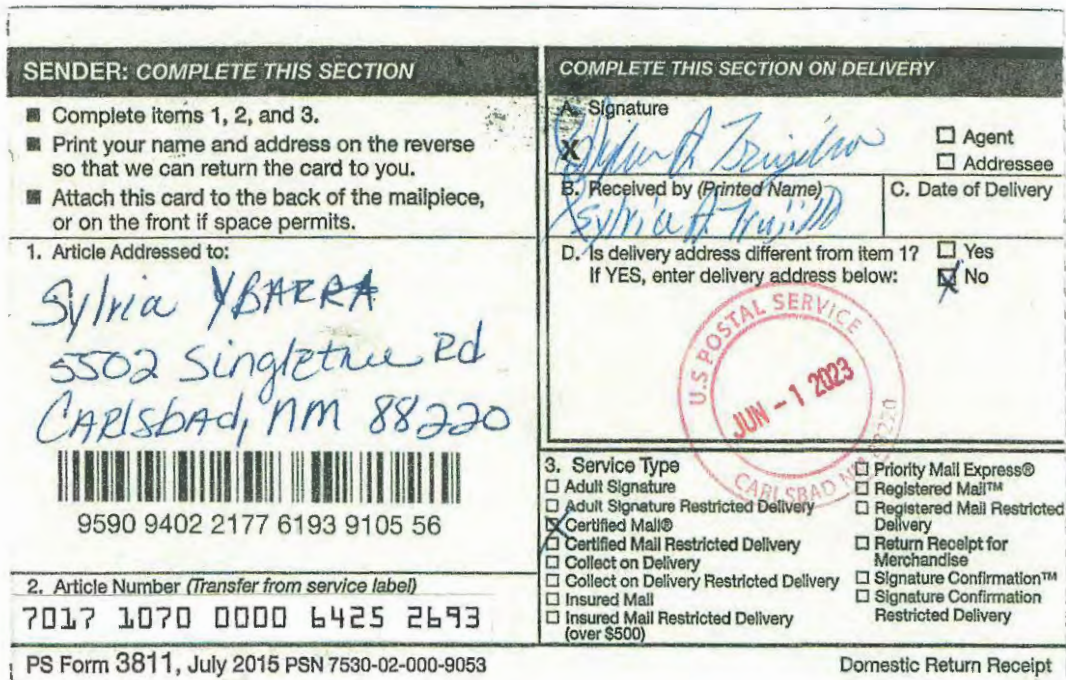 SENDER: COMPLETE THIS SECTION
■ Complete items 1, 2, and 3.
■ Print your name and address on the reverse
so that we can return the card to you.
■ Attach this card to the back of the mailpiece,
or on the front if space permits.
1. Article Addressed to:
Sylvia YBARRA
5502 Singletree Rd
CARlsbAd, NM 88220
9590 9402 2177 6193 9105 56
2. Article Number (Transfer from service label)
7017 1070 0000 6425 2693
COMPLETE THIS SECTION ON DELIVERY
A. Signature
X Sylvia A Trujillo
☐ Agent
☐ Addressee
B. Received by (Printed Name)
Sylvia A Trujillo
C. Date of Delivery
D. Is delivery address different from item 1? ☐ Yes
If YES, enter delivery address below: ☒ No
U.S POSTAL SERVICE
JUN - 1 2023
CARLSBAD NM 88220
3. Service Type
☐ Adult Signature
☐ Adult Signature Restricted Delivery
☒ Certified Mail®
☐ Certified Mail Restricted Delivery
☐ Collect on Delivery
☐ Collect on Delivery Restricted Delivery
☐ Insured Mail
☐ Insured Mail Restricted Delivery
(over $500)
☐ Priority Mail Express®
☐ Registered Mail™
☐ Registered Mail Restricted
Delivery
☐ Return Receipt for
Merchandise
☐ Signature Confirmation™
☐ Signature Confirmation
Restricted Delivery
PS Form 3811, July 2015 PSN 7530-02-000-9053
Domestic Return Receipt